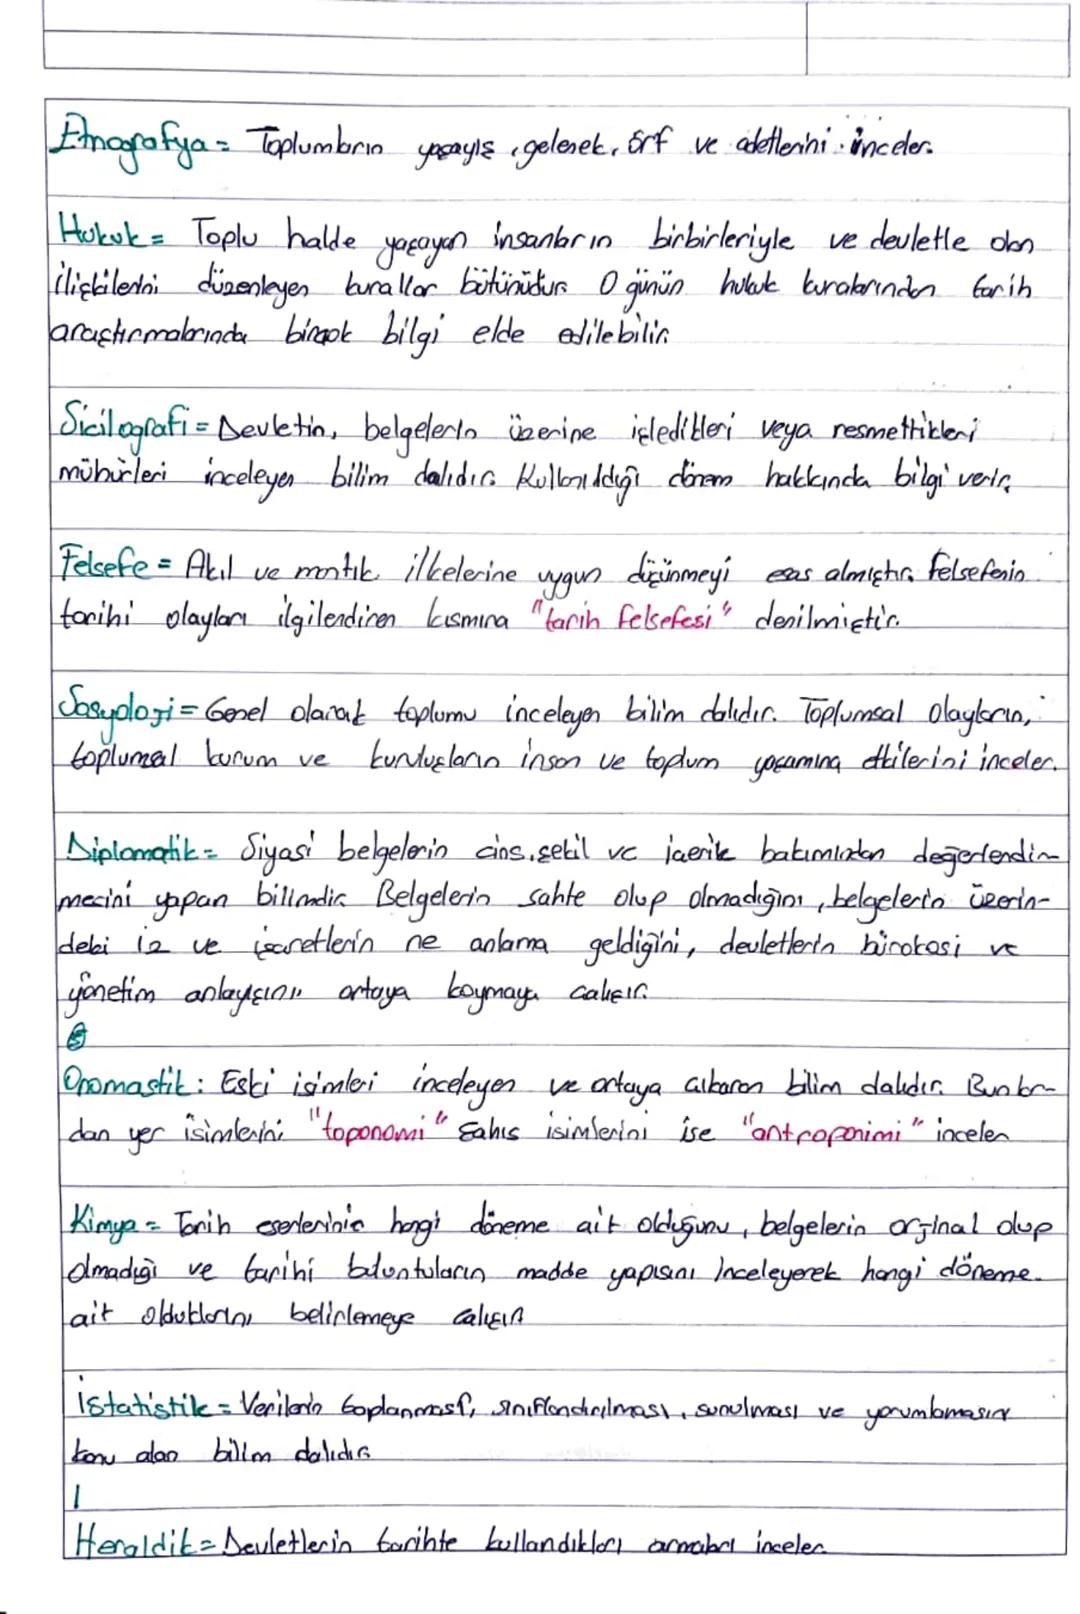 Etnografya = Toplumların yaşayış, gelenek, örf ve adetlerini inceler.
Hukuk = Toplu halde yaşayan insanların birbirleriyle ve devletle olan
ilişkilerini düzenleyen kurallar bütünüdür. O günün hukuk kurallarından tarih
araştırmalarında birçok bilgi elde edilebilir.
Sicilografi = Devletin, belgelerin üzerine işledikleri veya resmettikleri
mühürleri inceleyen bilim dalıdır. Kullanıldığı dönem hakkında bilgi verir.
Felsefe = Akıl ve mantık ilkelerine uygun düşünmeyi esas almıştır. Felsefenin
tarihi olayları ilgilendiren kısmına "tarih felsefesi" denilmiştir.
Sosyoloji = Genel olarak toplumu inceleyen bilim dalıdır. Toplumsal olayların,
toplumsal kurum ve kuruluşların insan ve toplum yaşamına etkilerini inceler.
Diplomatik = Siyasi belgelerin cins, şekil ve içerik bakımından değerlendir-
mesini yapan bilimdir. Belgelerin sahte olup olmadığını, belgelerin üzerin-
deki iz ve işaretlerin ne anlama geldiğini, devletlerin bürokasi ve
yönetim anlayışını ortaya koymaya çalışır.
Onomastik: Eski isimleri inceleyen ve ortaya çıkaran bilim dalıdır. Bunlar-
dan yer isimlerini "toponomi" şahıs isimlerini ise "antroponimi" inceler
Kimya = Tarih eserlerinin hangi döneme ait olduğunu, belgelerin orjinal olup
olmadığı ve tarihi buluntuların madde yapısını inceleyerek hangi döneme
ait olduklarını belirlemeye çalışır
İstatistik = Verilerin toplanması, sınıflandırılması, sunulması ve yorumlamasını
konu alan bilim dalıdır.
Heraldik = Devletlerin tarihte kullandıkları armaları inceler.